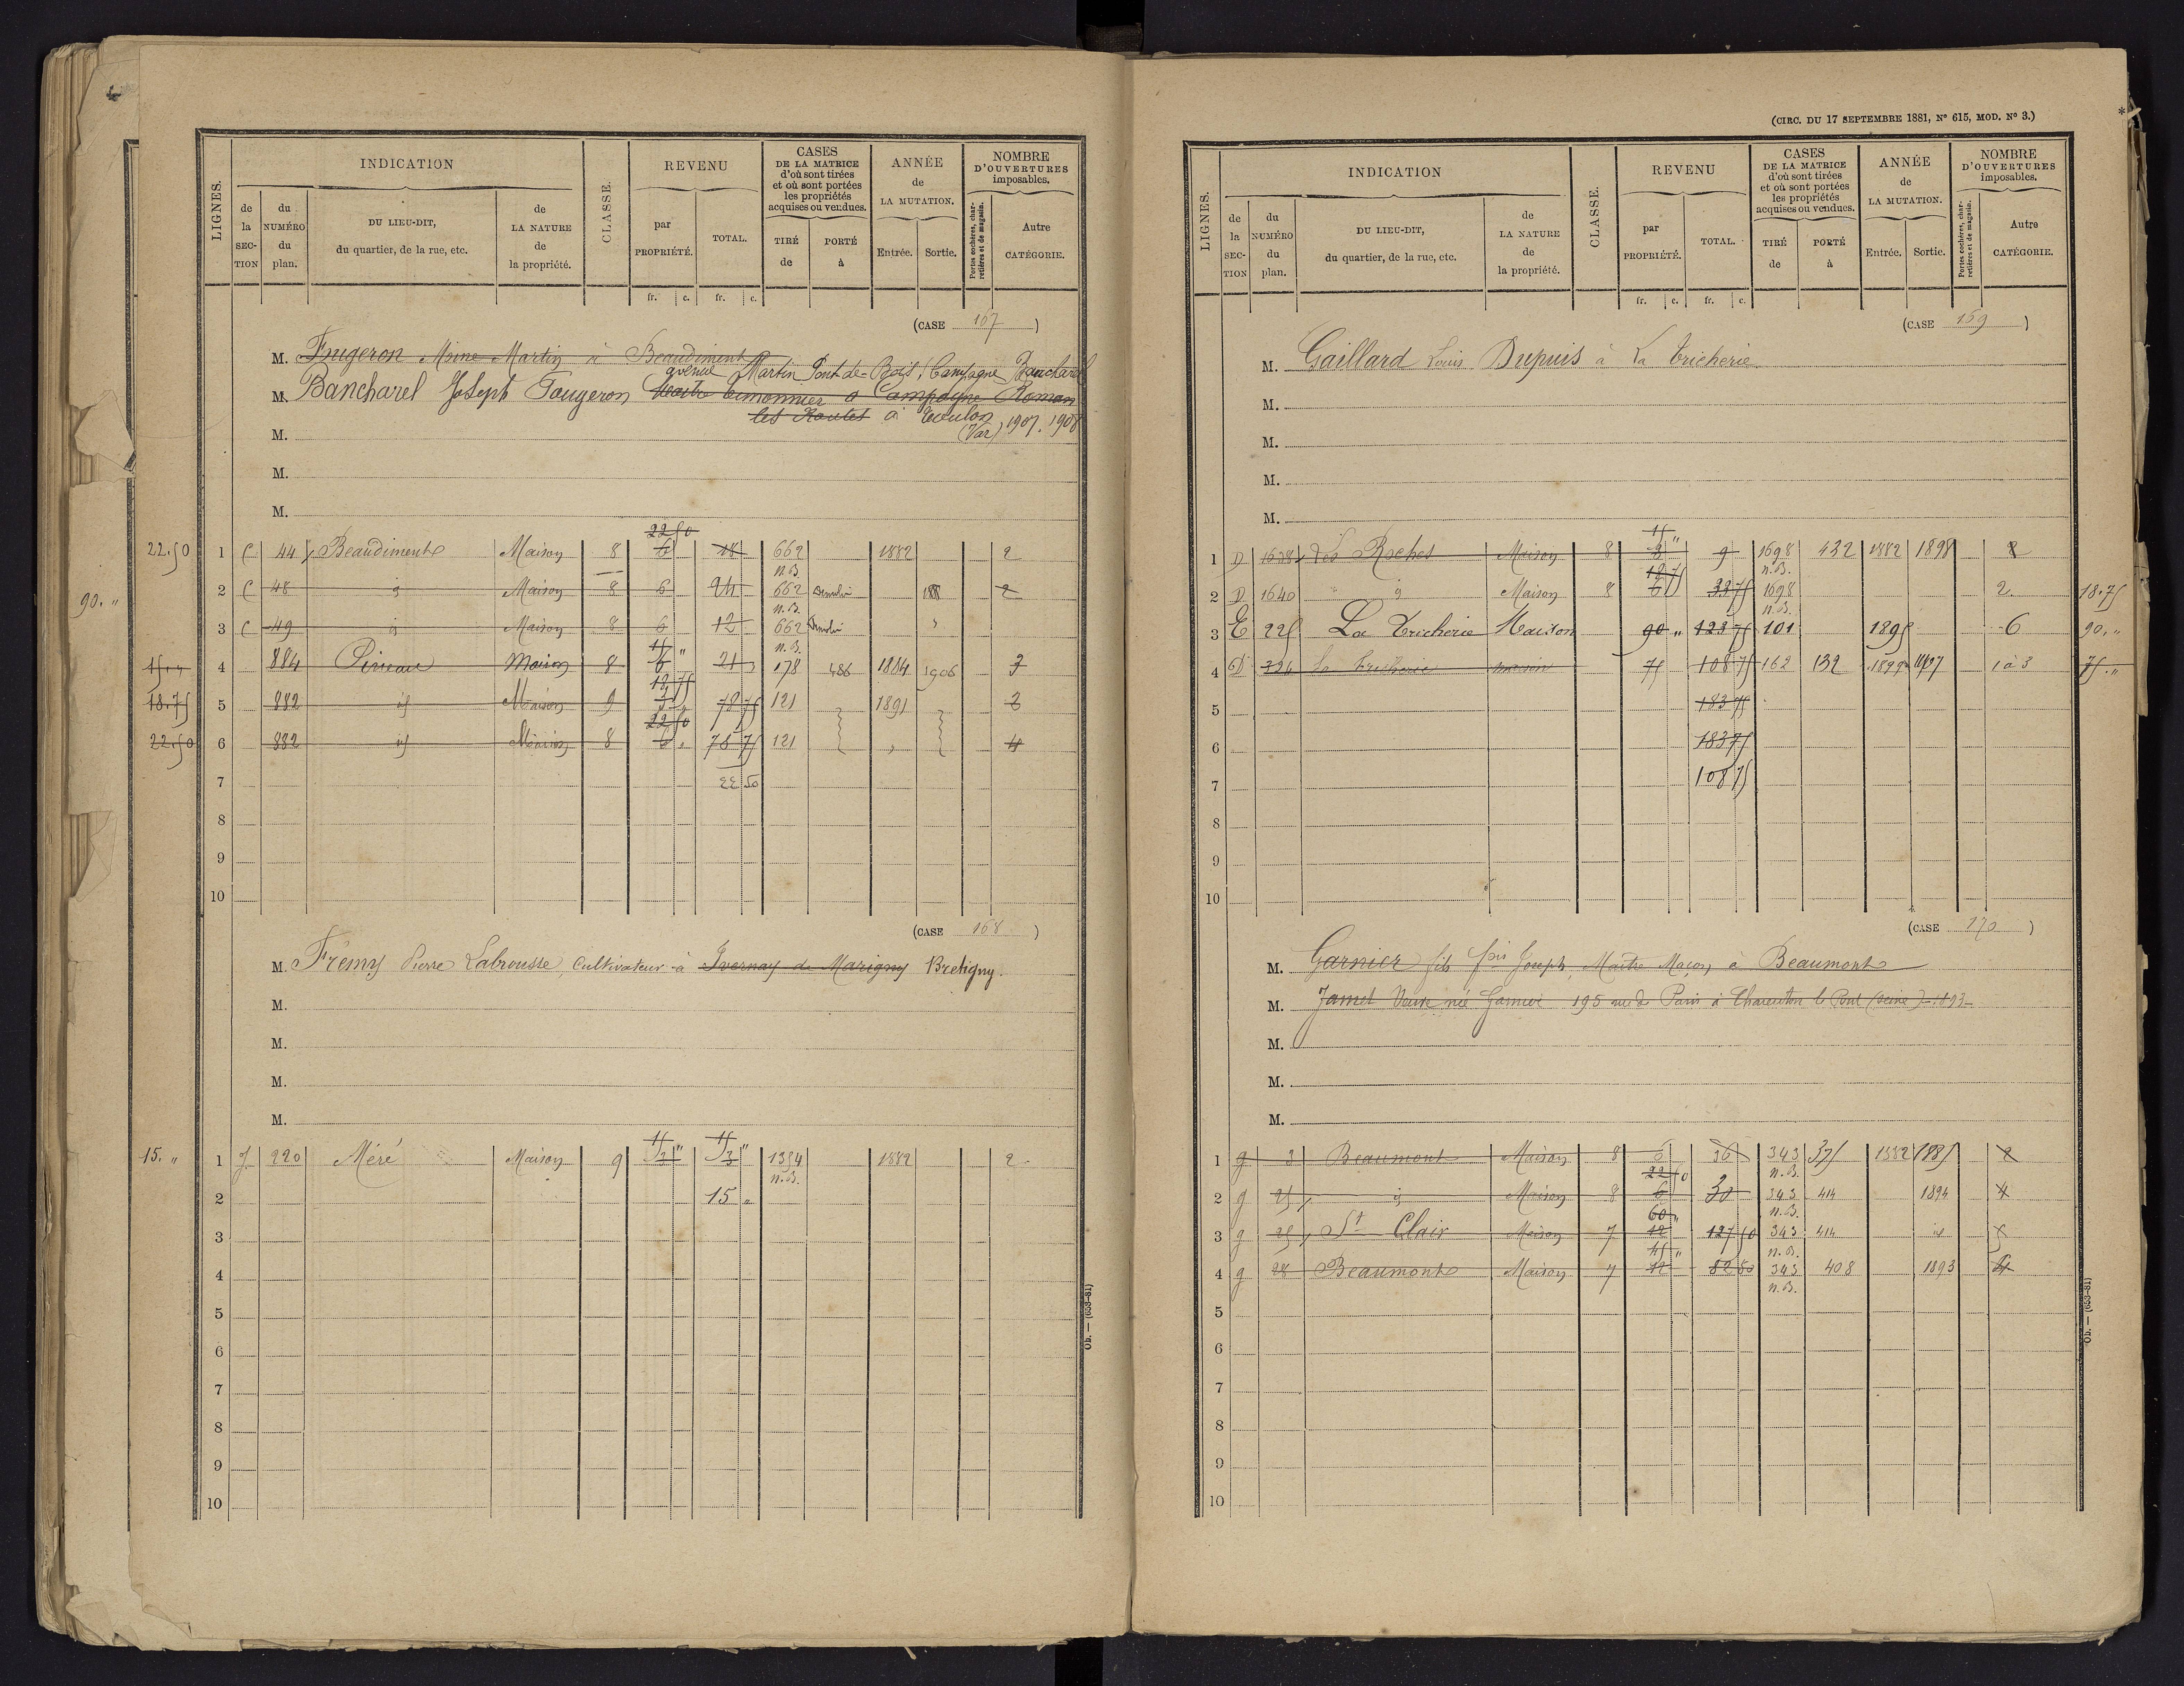 INDICATION
REVENU
CASES
DE LA MATRICE
d'où sont tirées
et où sont portées
les propriétés
acquises ou vendues.
ANNÉE
de
LA MUTATION.
NOMBRE
D'OUVERTURES
imposables.
LIGNES.
de la SEC-TION
du NUMÉRO du plan.
DU LIEU-DIT,
du quartier, de la rue, etc.
de LA NATURE de la propriété.
CLASSE.
par PROPRIÉTÉ.
TOTAL.
TIRÉ de
PORTÉ à
Entrée.
Sortie.
Portes cochères, char-
retières et de magasin.
Autre CATÉGORIE.
fr. c. fr. c.
(CASE 167 )
M. Fugeron Mme Martin à Beaudiment
avenue Martin Pont-de-Bois, Campagne Bancharel
M. Bancharel Joseph Fougeron
les Routes à Toulon
M. (Var) 1907. 1908
M.
M.
22.50 1 C 44 Beaudiment Maison 8 22 50 6 18 662 n.B. 1882 2
90. " 2 C 48 id Maison 8 6 24 662 n.B. Démoli 2
3 C 49 id Maison 8 6 12 662 n.B. Démoli "
15. " 4 884 Maison 8 15 " 6 21 178 486 1884 1906 3
18.75 5 882 id Maison 9 18 75 3 78 75 121 1891 2
22.50 6 882 id Maison 8 22 50 6 78 75 121 " 4
7 22 50
8
9
10
(CASE 168 )
M. Frémy Pierre Labrousse, Cultivateur à Ivernay de Marigny Bretigny.
M.
M.
M.
M.
15. " 1 J 220 Méré Maison 9 15 " 3 15 " 3 1384 n.B. 1882 2
2 15 "
3
4
5
6
7
8
9
10
Ob. — (653-81)
(CIRC. DU 17 SEPTEMBRE 1881, N° 615, MOD. N° 3.)
INDICATION
REVENU
CASES
DE LA MATRICE
d'où sont tirées
et où sont portées
les propriétés
acquises ou vendues.
ANNÉE
de
LA MUTATION.
NOMBRE
D'OUVERTURES
imposables.
LIGNES.
de la SEC-TION
du NUMÉRO du plan.
DU LIEU-DIT,
du quartier, de la rue, etc.
de LA NATURE de la propriété.
CLASSE.
par PROPRIÉTÉ.
TOTAL.
TIRÉ de
PORTÉ à
Entrée.
Sortie.
Portes cochères, char-
retières et de magasin.
Autre CATÉGORIE.
fr. c. fr. c.
(CASE 169 )
M. Gaillard Louis Dupuis à La Tricherie
M.
M.
M.
M.
1 D 1638 Les Roches Maison 8 15 " 3 9 1698 n.B. 432 1882 1898 2
2 D 1640 id Maison 8 18 75 6 33 75 1698 n.B. 2 18.75
3 E 225 La Tricherie Maison 90 " 123 75 101 1895 6 90. "
4 324 La Tricherie maison 75 108 75 162 132 1899 1 à 3 75. "
5 183 75
6 183 75
7 108 75
8
9
10
(CASE 170 )
M. Garnier fils fois Joseph, Maître Maçon, à Beaumont
M. Jamet Veuve née Garnier 195 rue de Paris à Charenton le Pont (Seine) 1893
M.
M.
M.
1 g 3 Beaumont Maison 8 6 36 343 n.B. 375 1882 1885 2
2 g 25 id Maison 8 22 50 6 30 343 n.B. 414 1894 4
3 g 25 St Clair Maison 7 60 " 12 127 50 343 n.B. 414 id
4 g 28 Beaumont Maison 7 45 " 12 82 50 343 n.B. 408 1893 4
5
6
7
8
9
10
Ob. — (653-81)